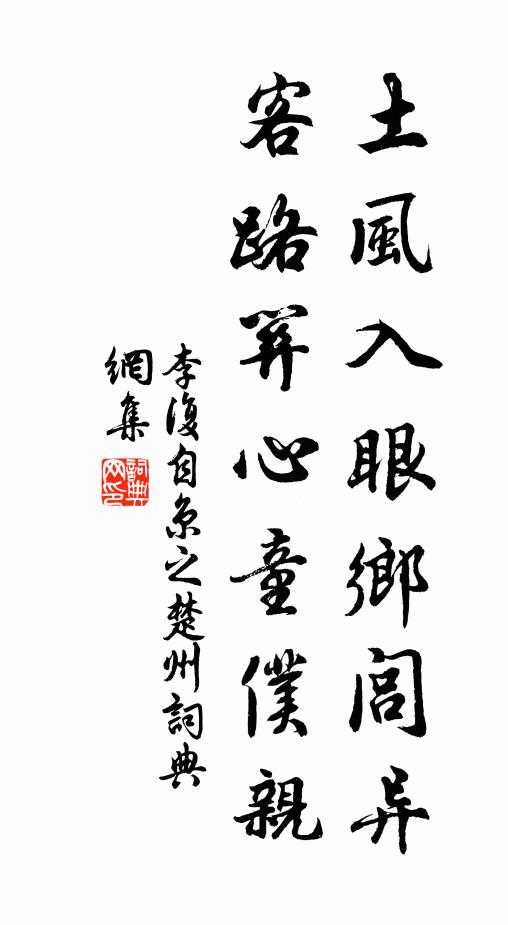 土風入眼鄉閭异
客路關心童僕親
李復自京之楚州詞典
網集
詞典
网印